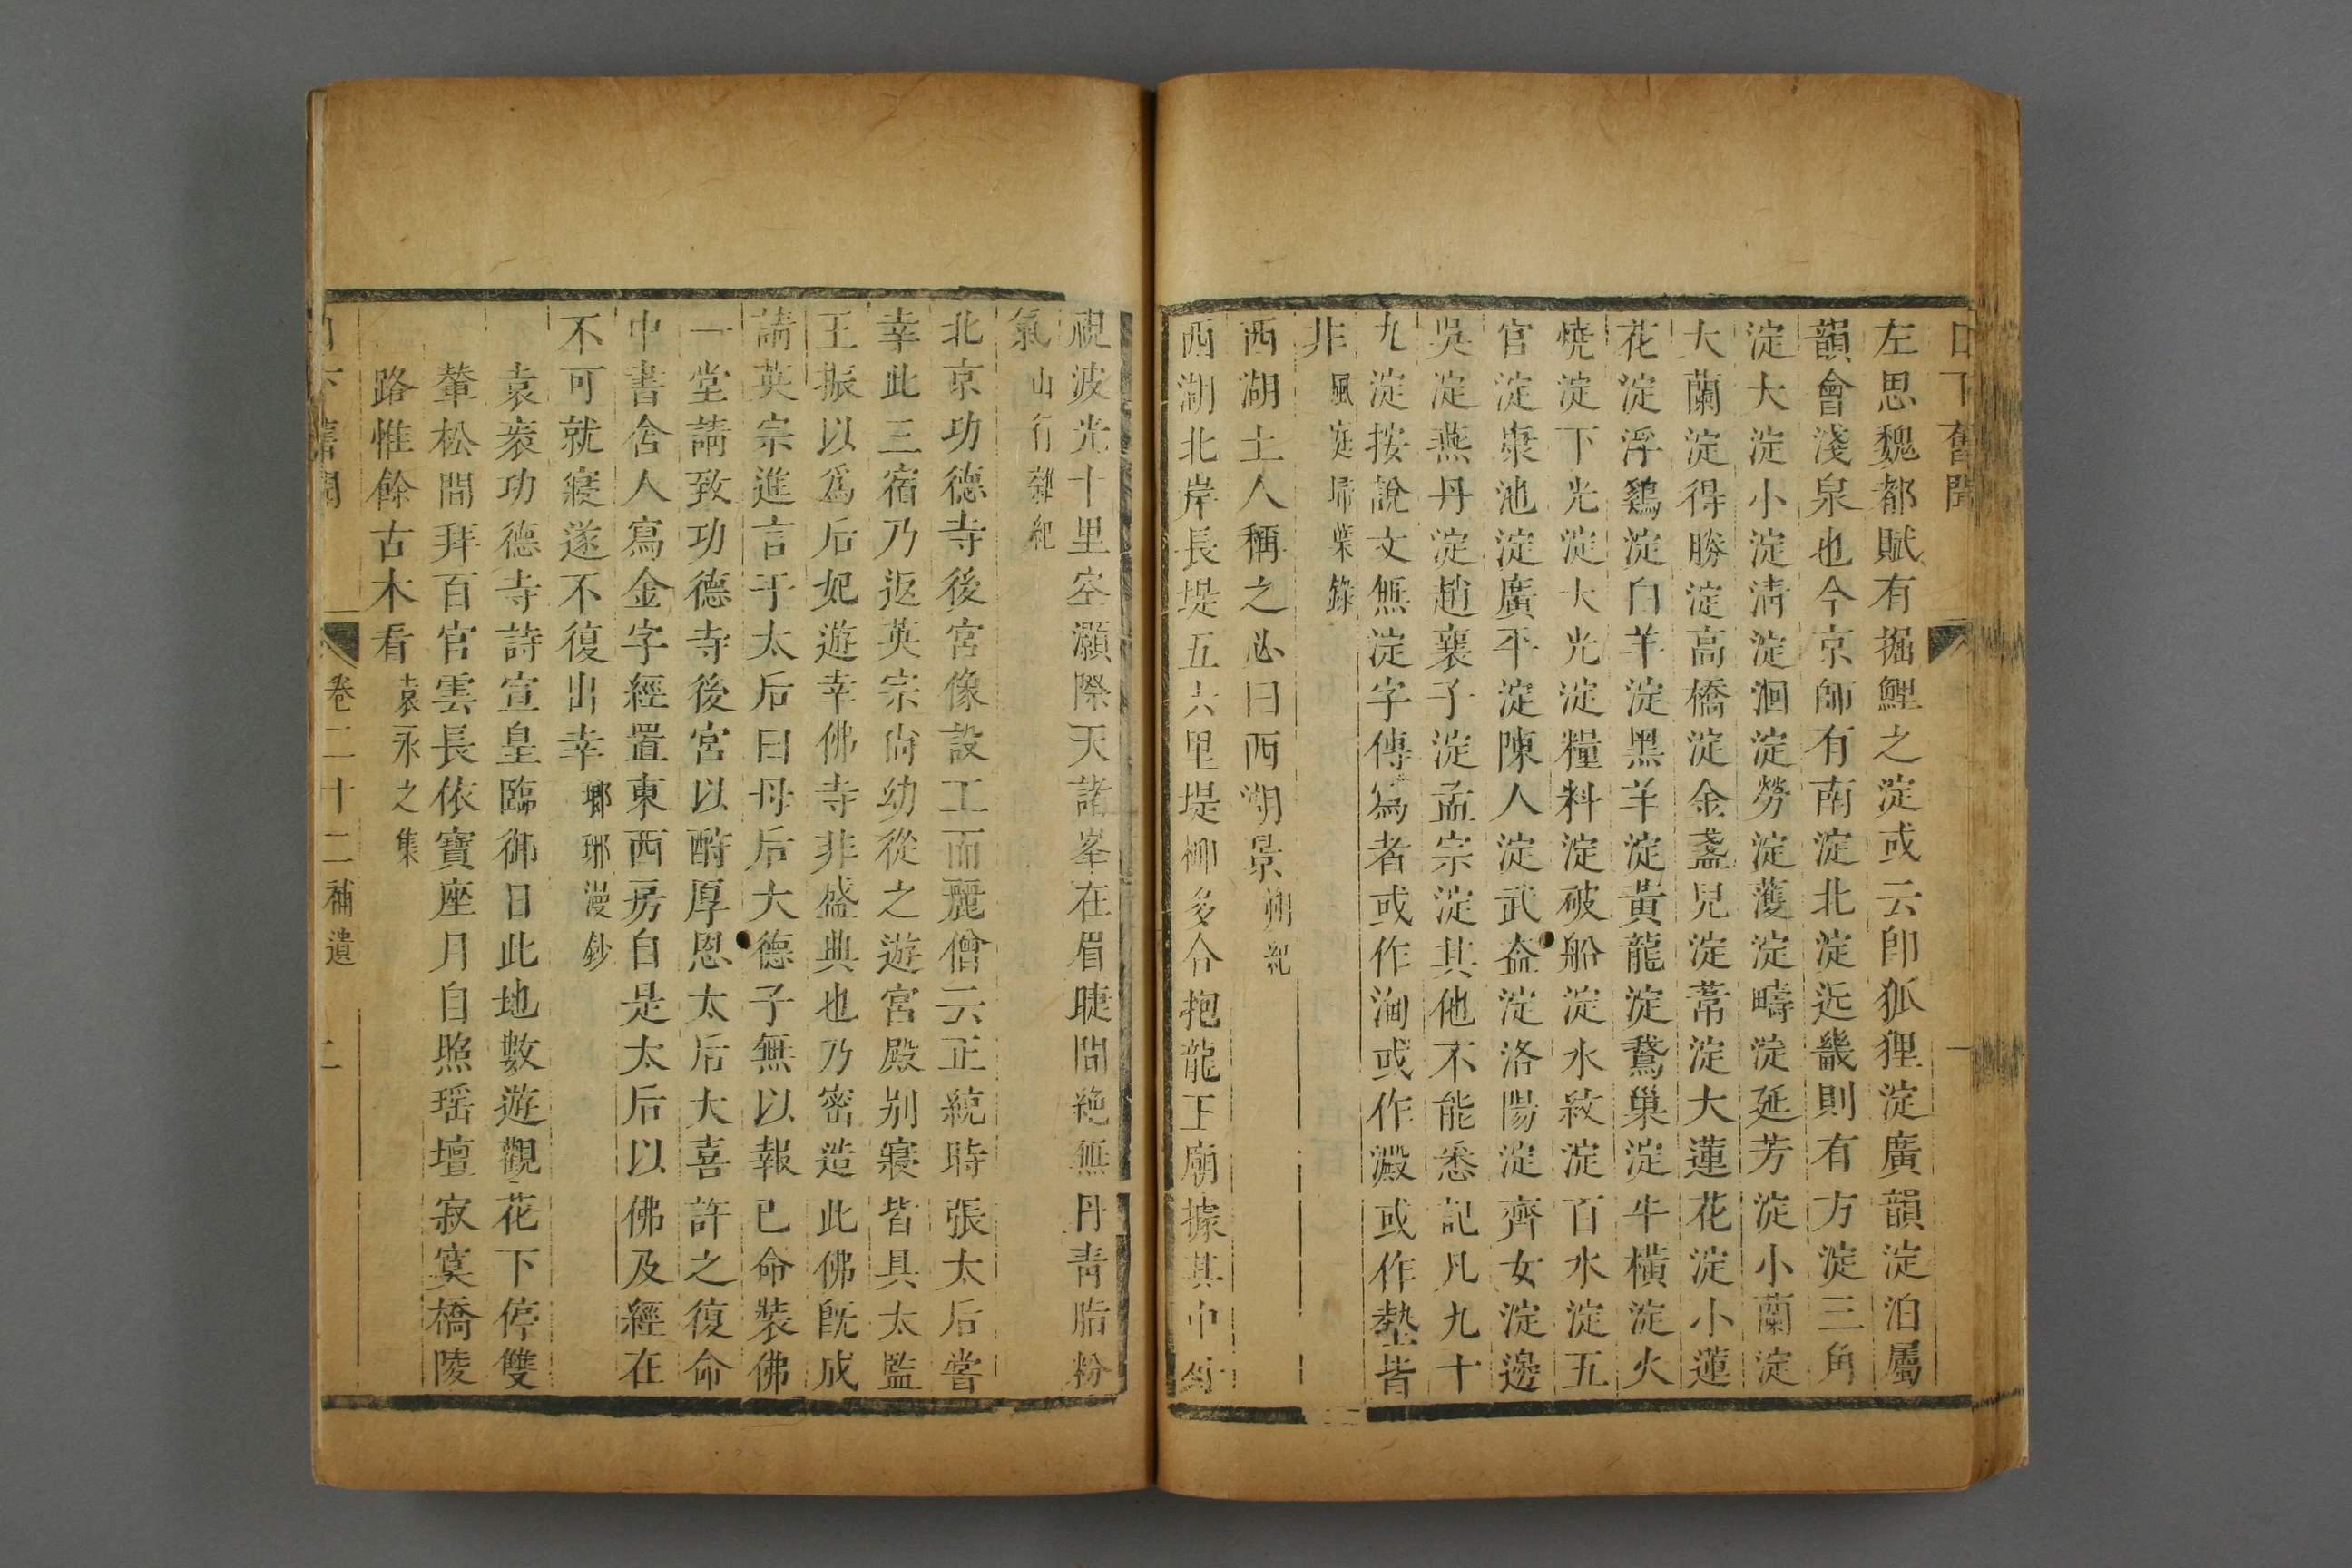 日下舊聞
左思魏都賦有掘鯉之淀或云卽狐狸淀廣韻淀泊屬
韻會淺泉也今京師有南淀北淀近畿則有方淀三角
淀大淀小淀淸淀洄淀勞淀護淀疇淀延芳淀小蘭淀
大蘭淀得勝淀高橋淀金盞兒淀蒂淀大蓮花淀小蓮
花淀浮鷄淀白羊淀黑羊淀黃龍淀鵞巢淀牛橫淀火
燒淀下光淀大光淀糧料淀破船淀水紋淀百水淀五
官淀康池淀廣平淀陳人淀武盍淀洛陽淀齊女淀邊
吳淀燕丹淀趙襄子淀孟宗淀其他不能悉記凡九十
九淀按說文無淀字傳寫者或作洵或作澱或作墊皆
非 風庭埽葉錄
西湖土人稱之必曰西湖景 朔紀
西湖北岸長堤五六里堤柳多合抱龍王廟據其中
視波光十里空灝際天諸峯在眉睫間絶無丹靑脂粉
氣 山行雜紀
北京功德寺後宮像設工而麗僧云正統時張太后嘗
幸此三宿乃返英宗尙幼從之遊宮殿别寢皆具太監
王振以爲后妃遊幸佛寺非盛典也乃密造此佛旣成
請英宗進言于太后曰母后大德子無以報已命裝佛
一堂請致功德寺後宮以酧厚恩太后大喜許之復命
中書舍人寫金字經置東西房自是太后以佛及經在
不可就寢遂不復出幸 瑯琊漫鈔
袁袠功德寺詩宣皇臨御日此地數遊觀花下停雙
輦松間拜百官雲長依寶座月自照瑶壇寂寞橋陵
路惟餘古木看 袁永之集
日下舊聞 卷二十二補遺 二